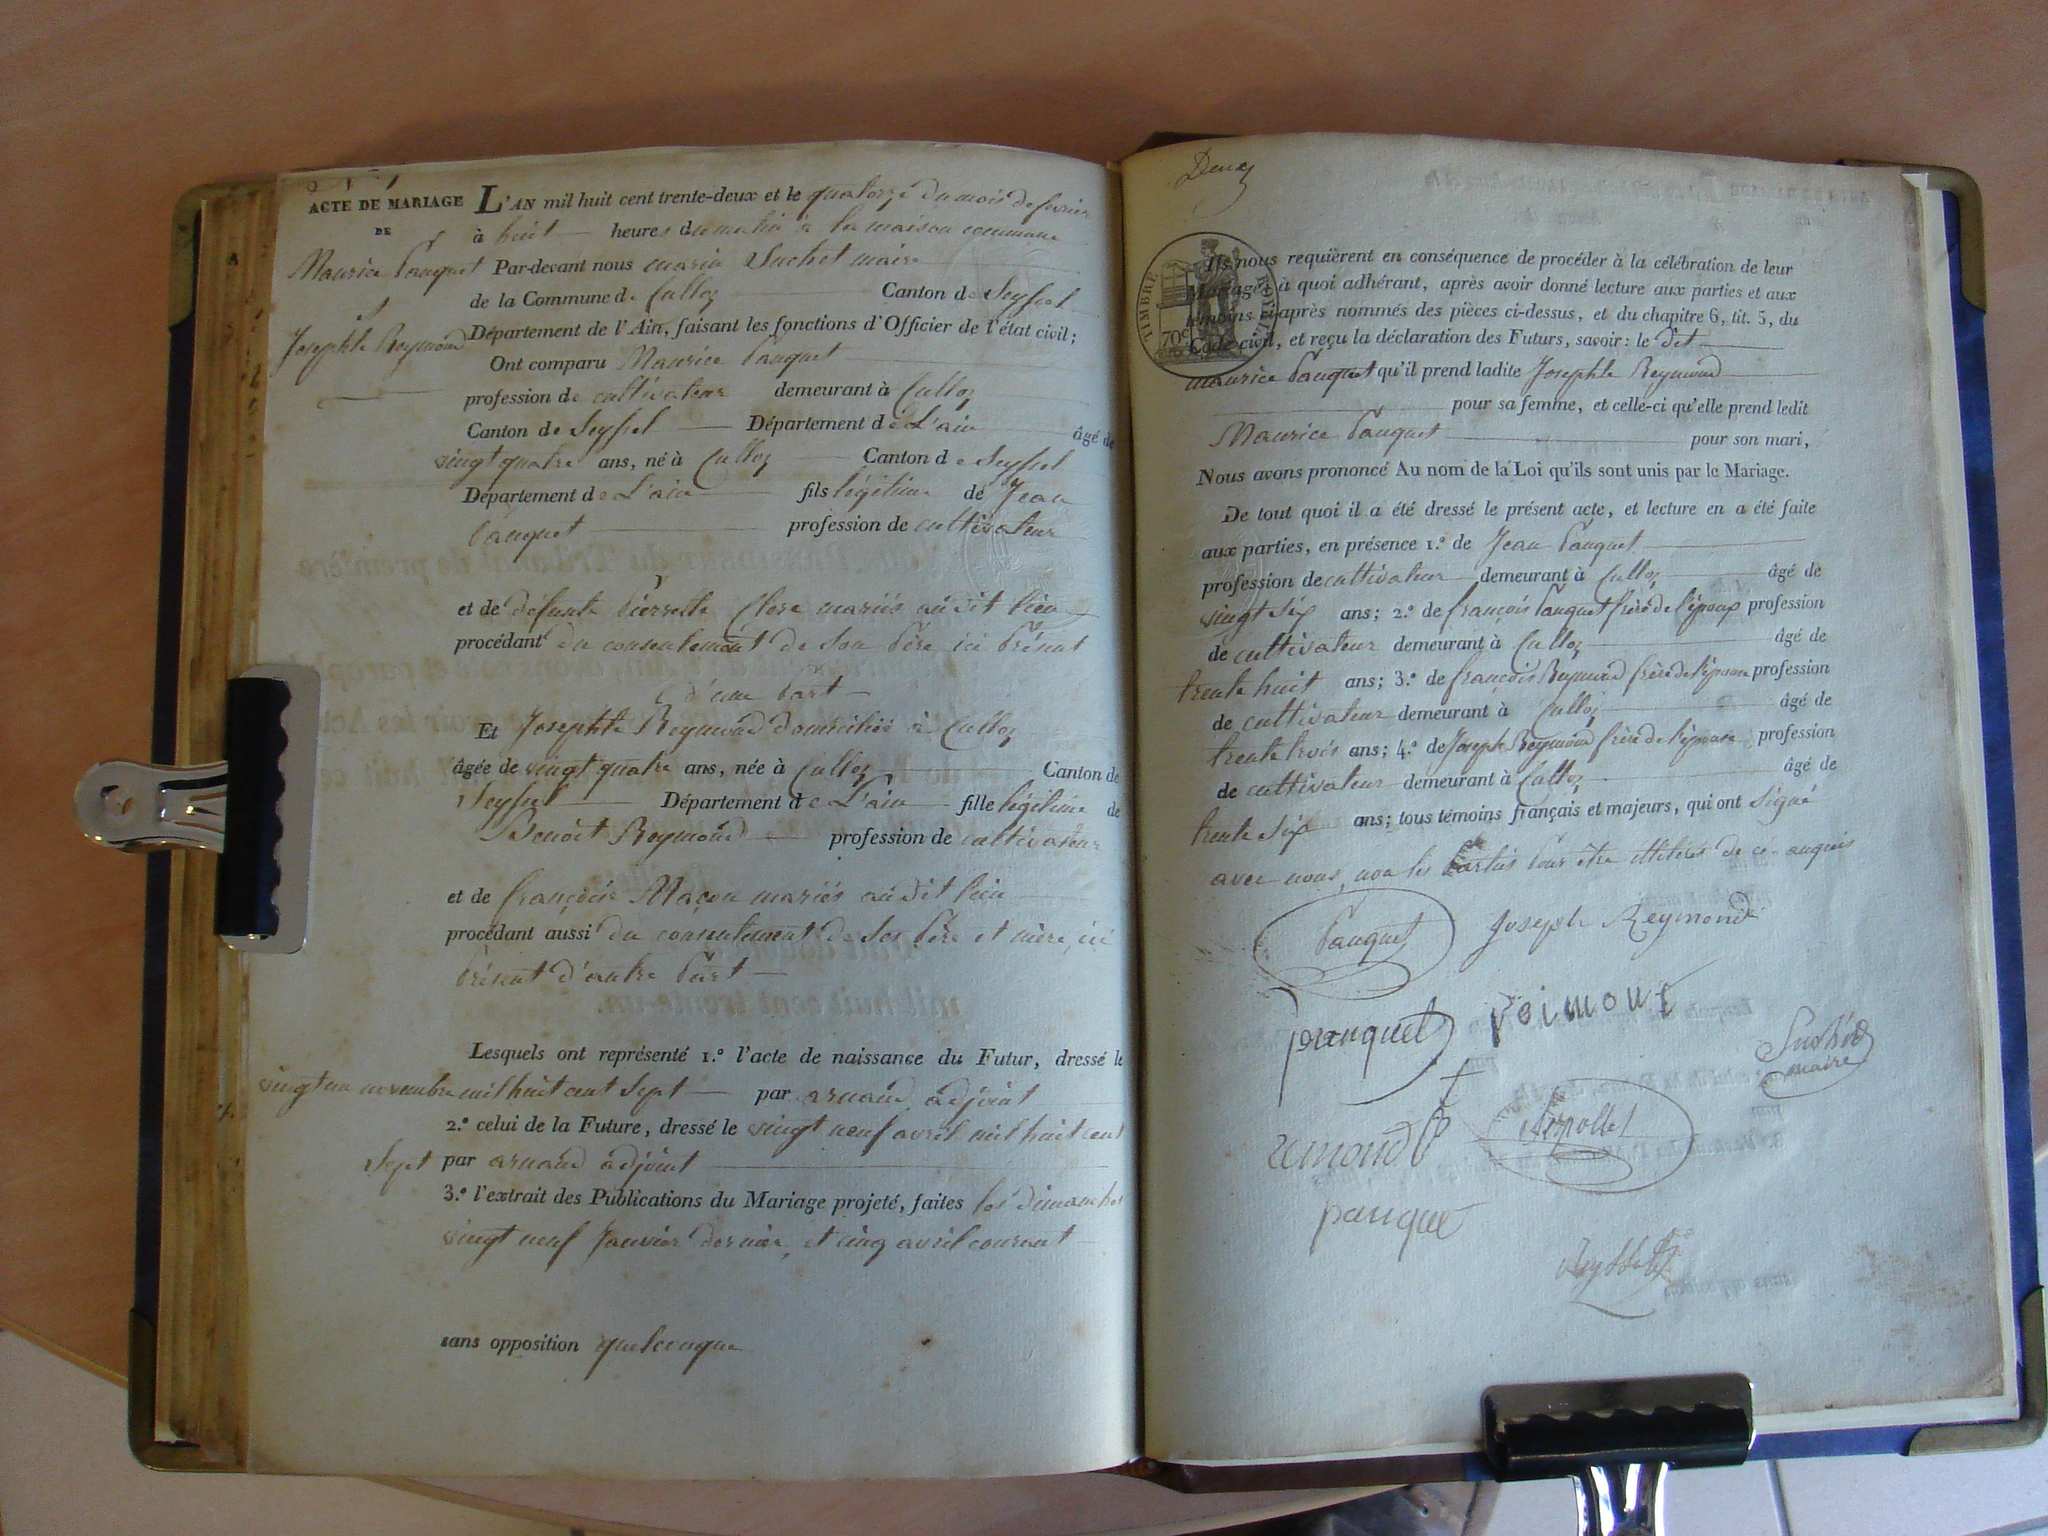 ACTE DE MARIAGE
DE
Maurice Pauquet
&
Josephte Reymond
L'AN mil huit cent trente-deux et le quatorze du mois de fevrier
à huit heures du matin à la maison commune
Par-devant nous marin Suchet maire
de la Commune de Culloz Canton de Seyssel
Département de l'Ain, faisant les fonctions d'Officier de l'état civil;
Ont comparu Maurice Pauquet
profession de cultivateur demeurant à Culloz
Canton de Seyssel Département de L'ain âgé de
vingt quatre ans, né à Culloz Canton de Seyssel
Département de L'ain fils légitime de Jean
Pauquet profession de cultivateur
et de défunte Pierrette Clerc mariés audit lieu
procédant du consentement de son Père ici Présent
d'une Part
Et Josephte Reymond domiciliée à Culloz
âgée de vingt quatre ans, née à Culloz Canton de
Seyssel Département de L'ain fille légitime de
Benoît Reymond profession de cultivateur
et de françoise Maçon mariés audit lieu
procédant aussi du consentement de ses Père et mère, ici
Présent d'autre Part
Lesquels ont représenté 1.º l'acte de naissance du Futur, dressé le
vingt un novembre mil huit cent sept par arnaud adjoint
2.º celui de la Future, dressé le vingt neuf avril mil huit cent
sept par arnaud adjoint
3.º l'extrait des Publications du Mariage projeté, faites les dimanches
vingt neuf Janvier dernier, et cinq avril courant
sans opposition quelconque
Deux
TIMBRE ROYAL
70c
Ils nous requièrent en conséquence de procéder à la célébration de leur
Mariage; à quoi adhérant, après avoir donné lecture aux parties et aux
témoins ci-après nommés des pièces ci-dessus, et du chapitre 6, tit. 5, du
Code civil, et reçu la déclaration des Futurs, savoir: le dit
maurice Pauquet qu'il prend ladite Josephte Reymond
pour sa femme, et celle-ci qu'elle prend ledit
Maurice Pauquet pour son mari,
Nous avons prononcé Au nom de la Loi qu'ils sont unis par le Mariage.
De tout quoi il a été dressé le présent acte, et lecture en a été faite
aux parties, en présence 1.º de Jean Pauquet
profession de cultivateur demeurant à Culloz âgé de
vingt six ans; 2.º de françois Pauquet frère de l'époux profession
de cultivateur demeurant à Culloz âgé de
trente huit ans; 3.º de françois Reymond frère de l'épouse profession
de cultivateur demeurant à Culloz âgé de
trente trois ans; 4.º de Joseph Reymond frère de l'épouse profession
de cultivateur demeurant à Culloz âgé de
trente six ans; tous témoins français et majeurs, qui ont signé
avec nous, non les Parties Pour être illitérés de ce enquis
Pauquet Joseph Reymond
pauquet reimont
Suchet
maire
remond
Serpollet
pauque